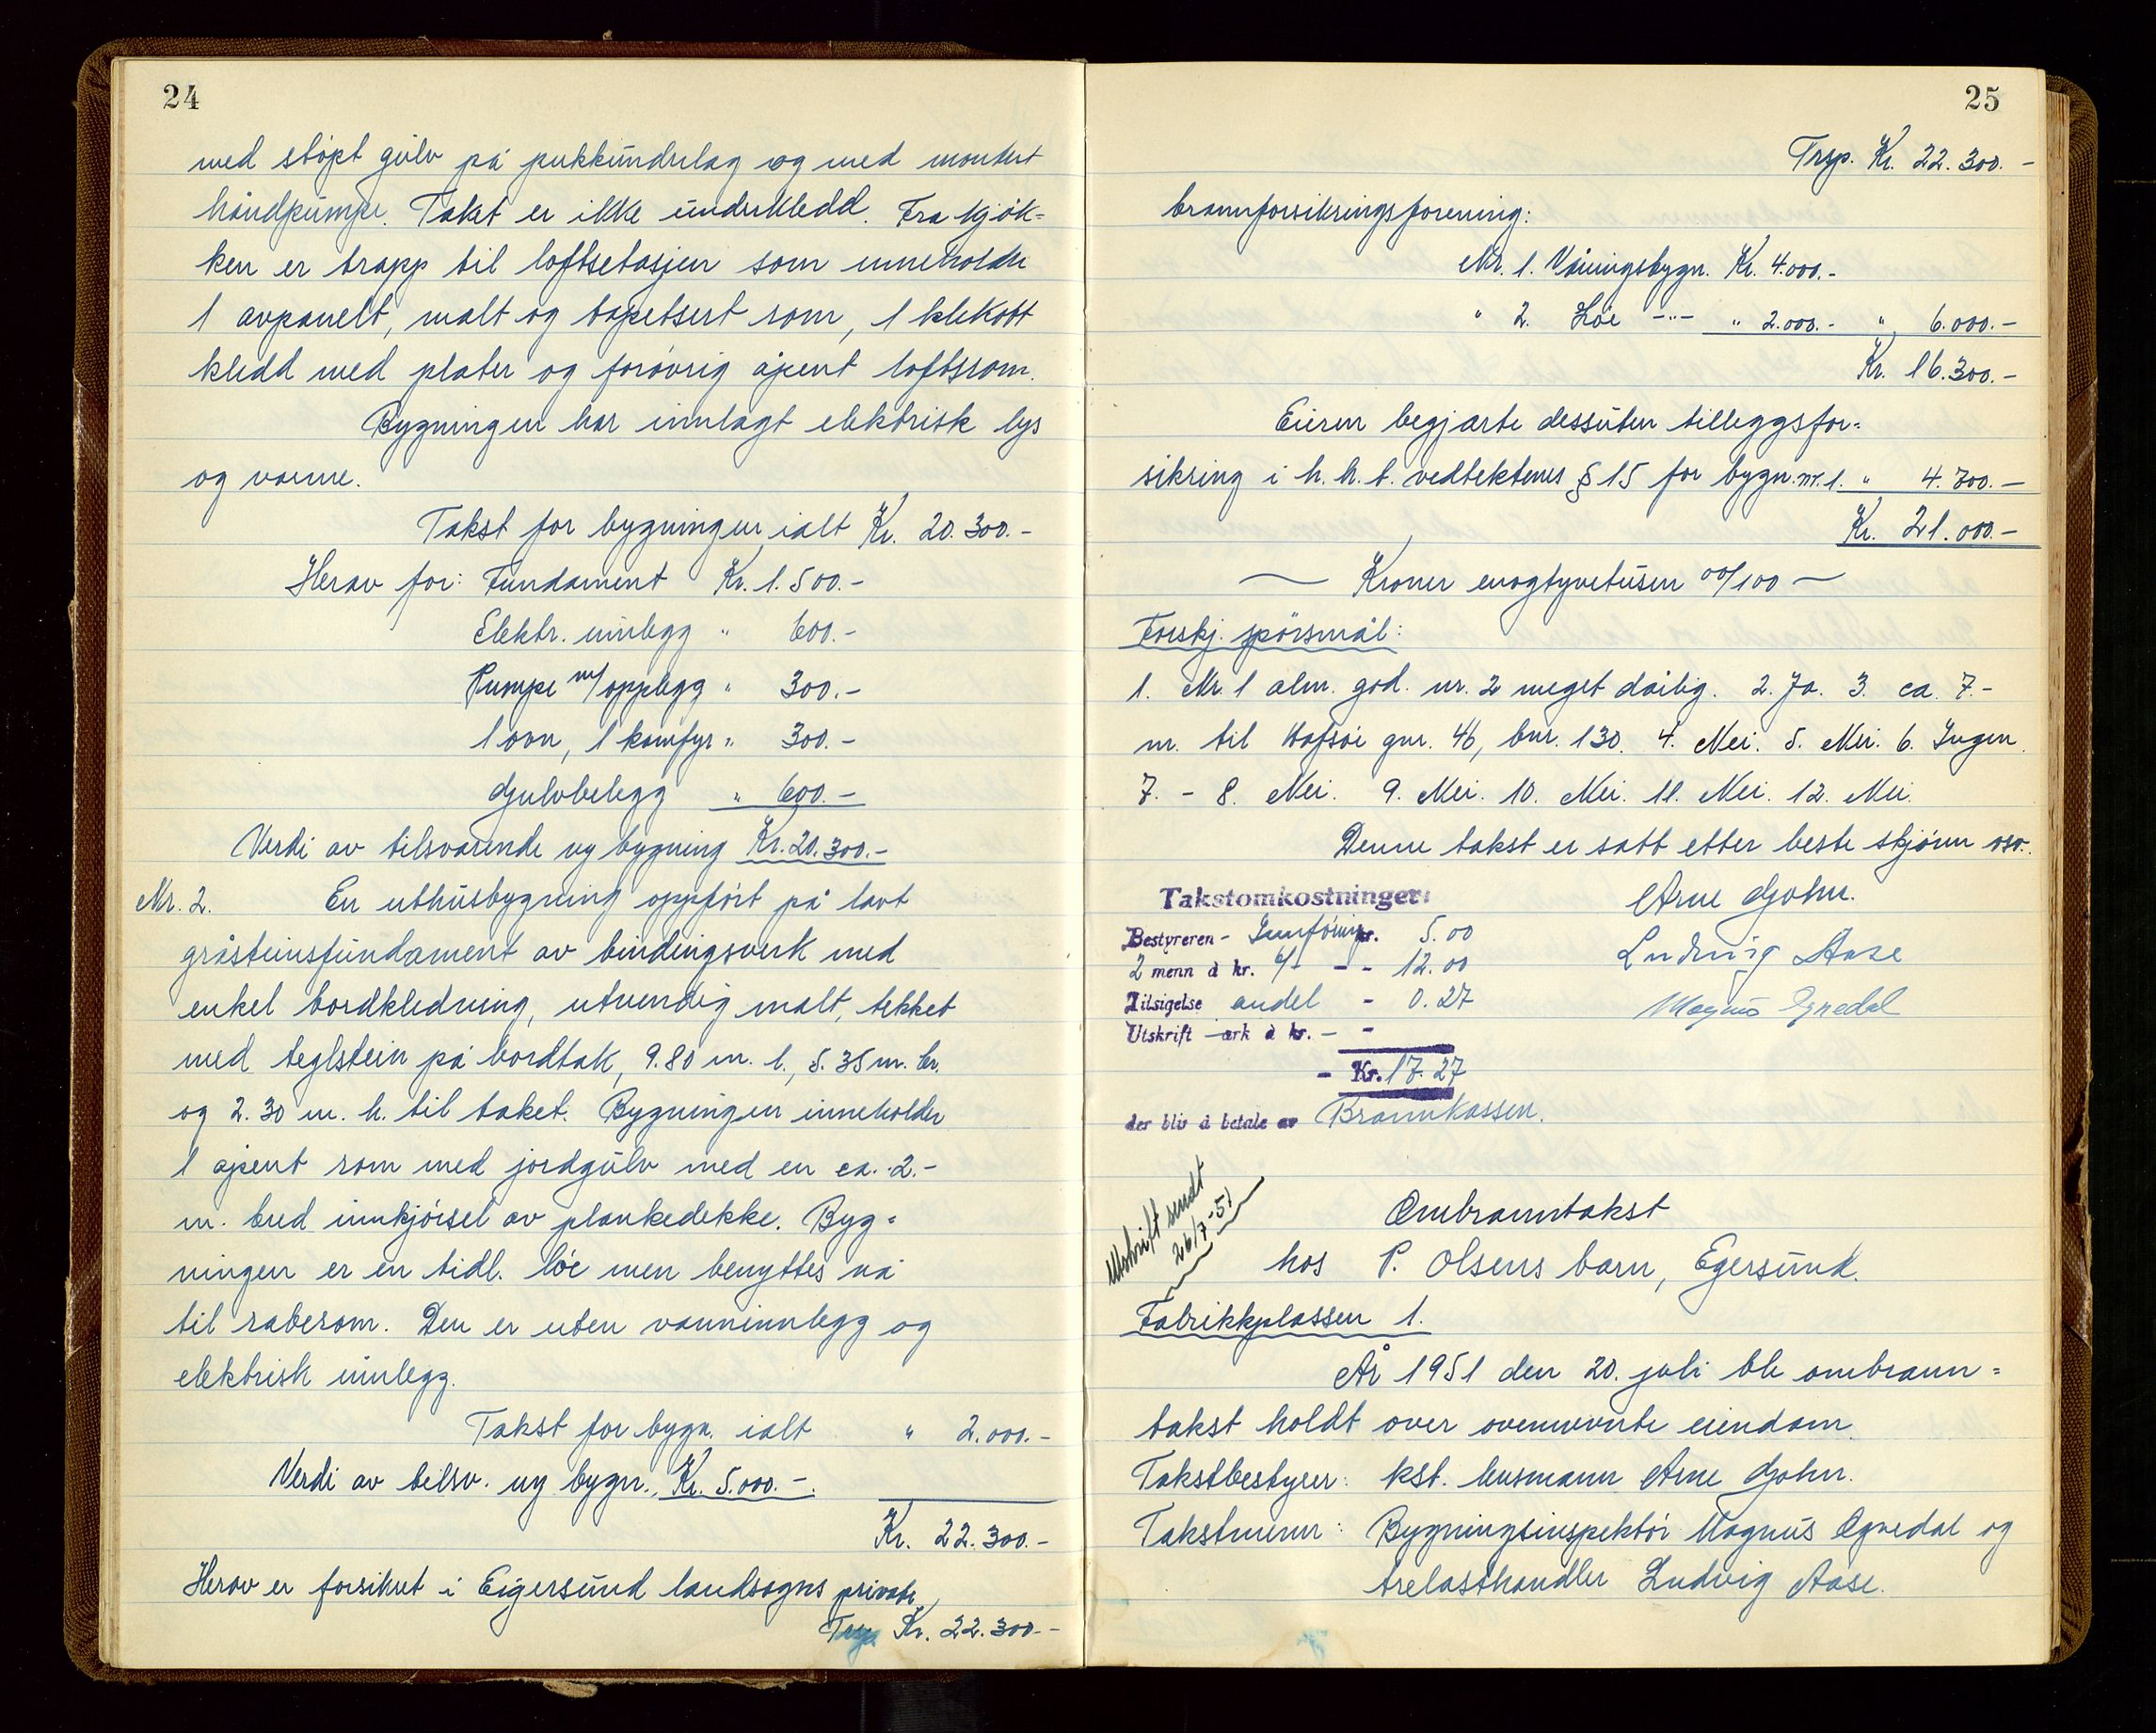 24
med støpt gulv på pukkunderlag og med montert
håndpumpe. Taket er ikke underkledd. Fra kjøk=
ken er trapp til loftsetasjen som inneholder
1 avpanelt, malt og tapetsert rom, 1 klekott
kledd med plater og forøvrig åpent loftsrom.
Bygningen har innlagt elektrisk lys
og varme.
Takst for bygningen ialt Kr. 20.300.-
Herav for: Fundament Kr. 1.500.-
Elektr. innlegg " 600.-
Pumpe m/opplegg " 300.-
1 ovn, 1 komfyr " 300.-
Gulvbelegg " 600.-
Verdi av tilsvarende ny bygning Kr. 20.300.-
Nr. 2. En uthusbygning oppført på lavt
gråsteinsfundament av bindingsverk med
enkel bordkledning, utvendig malt, tekket
med teglstein på bordtak, 9.80 m. l., 5.35 m. br.
og 2.30 m. h. til taket. Bygningen inneholder
1 åpent rom med jordgulv med en ca. 2.-
m. bred innkjørsel av plankedekke. Byg=
ningen er en tidl. løe men benyttes nå
til råberom. Den er uten vanninnlegg og
elektrisk innlegg.
Takst for bygn. ialt " 2.000.-
Verdi av tilsv. ny bygn. Kr. 5.000.-
Kr. 22.300.-
Herav er forsikret i Eigersund landsogns private
Trsp. Kr. 22.300.-
25
Trsp. Kr. 22.300.-
brannforsikringsforening:
Nr. 1. Våningsbygn. Kr. 4.000.-
" 2. Løe -"- " 2.000.- " 6.000.-
Kr. 16.300.-
Eieren begjærte dessuten tilleggsfor=
sikring i h. h. t. vedtektenes § 15 for bygn. nr. 1. " 4.700.-
Kr. 21.000.-
Kroner enogtyvetusen 00/100
Forskj. spørsmål:
1. Nr. 1 alm. god. nr. 2 meget dårlig. 2. Ja. 3. ca. 7.-
m. til Hafsøe gnr. 46, bnr. 130. 4. Nei. 5. Nei. 6. Ingen.
7. - 8. Nei. 9. Nei. 10. Nei. 11. Nei. 12. Nei.
Denne takst er satt etter beste skjønn osv.
Takstomkostninger: Arne Gjohn.
Bestyreren - Innføring kr. 5.00
Ludvig Aase
2 menn à kr. 6/- - - 12.00
Tilsigelse andel - 0.27
Magnus Egnedal
Utskrift - ark à kr. - -
- Kr. 17.27
der bliv å betale av Brannkassen.
Utskrift sendt
26/7-51
Ombranntakst
hos P. Olsens barn, Egersund.
Fabrikkplassen 1.
År 1951 den 20. juli ble ombrann=
takst holdt over ovennevnte eiendom.
Takstbestyrer: kst. lensmann Arne Gjohn.
Takstmenn: Bygningsinspektør Magnus Egnedal og
trelasthandler Ludvig Aase.